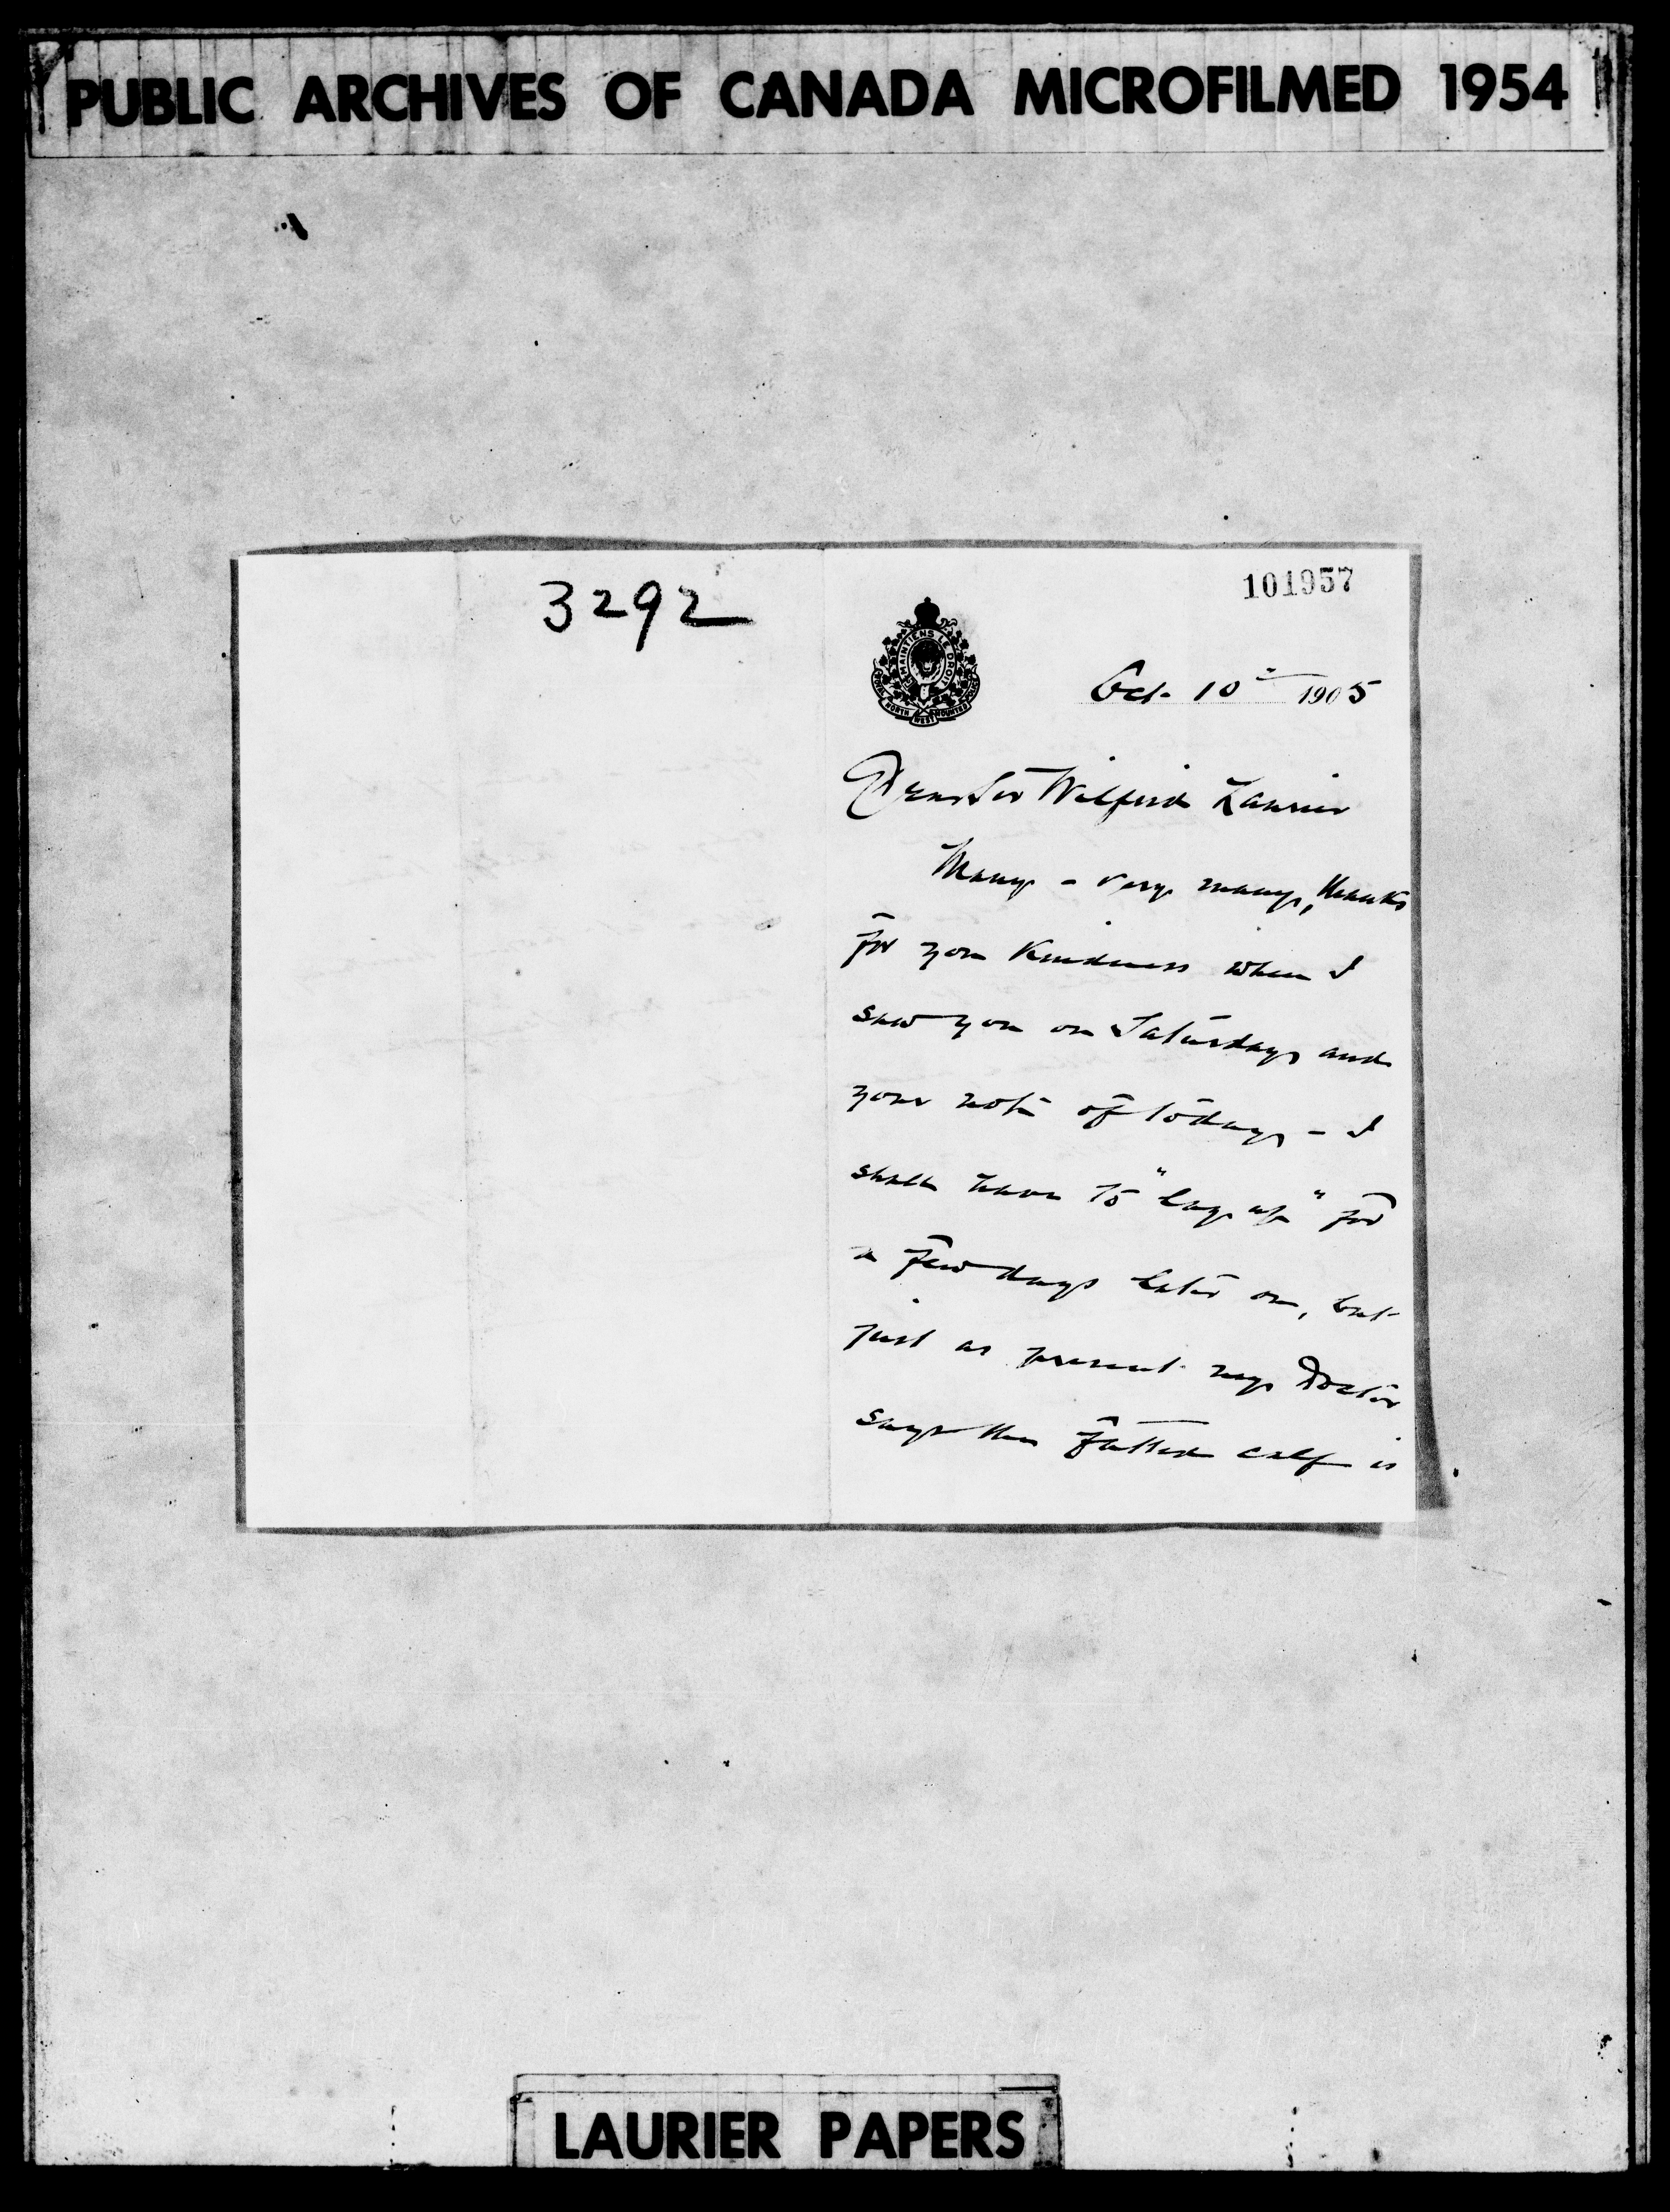 PUBLIC ARCHIVES OF CANADA MICROFILMED 1954
3292
101957
MAINTIENS LE DROIT
ROYAL NORTH WEST MOUNTED POLICE
Oct. 10th 1905
Dear Sir Wilfrid Laurier
Many - very many, thanks
for your kindness when I
saw you on Saturday and
your note of today - I
shall have to "lay up" for
a few days later on, but
just as present my Doctor
says the fatted calf is
LAURIER PAPERS